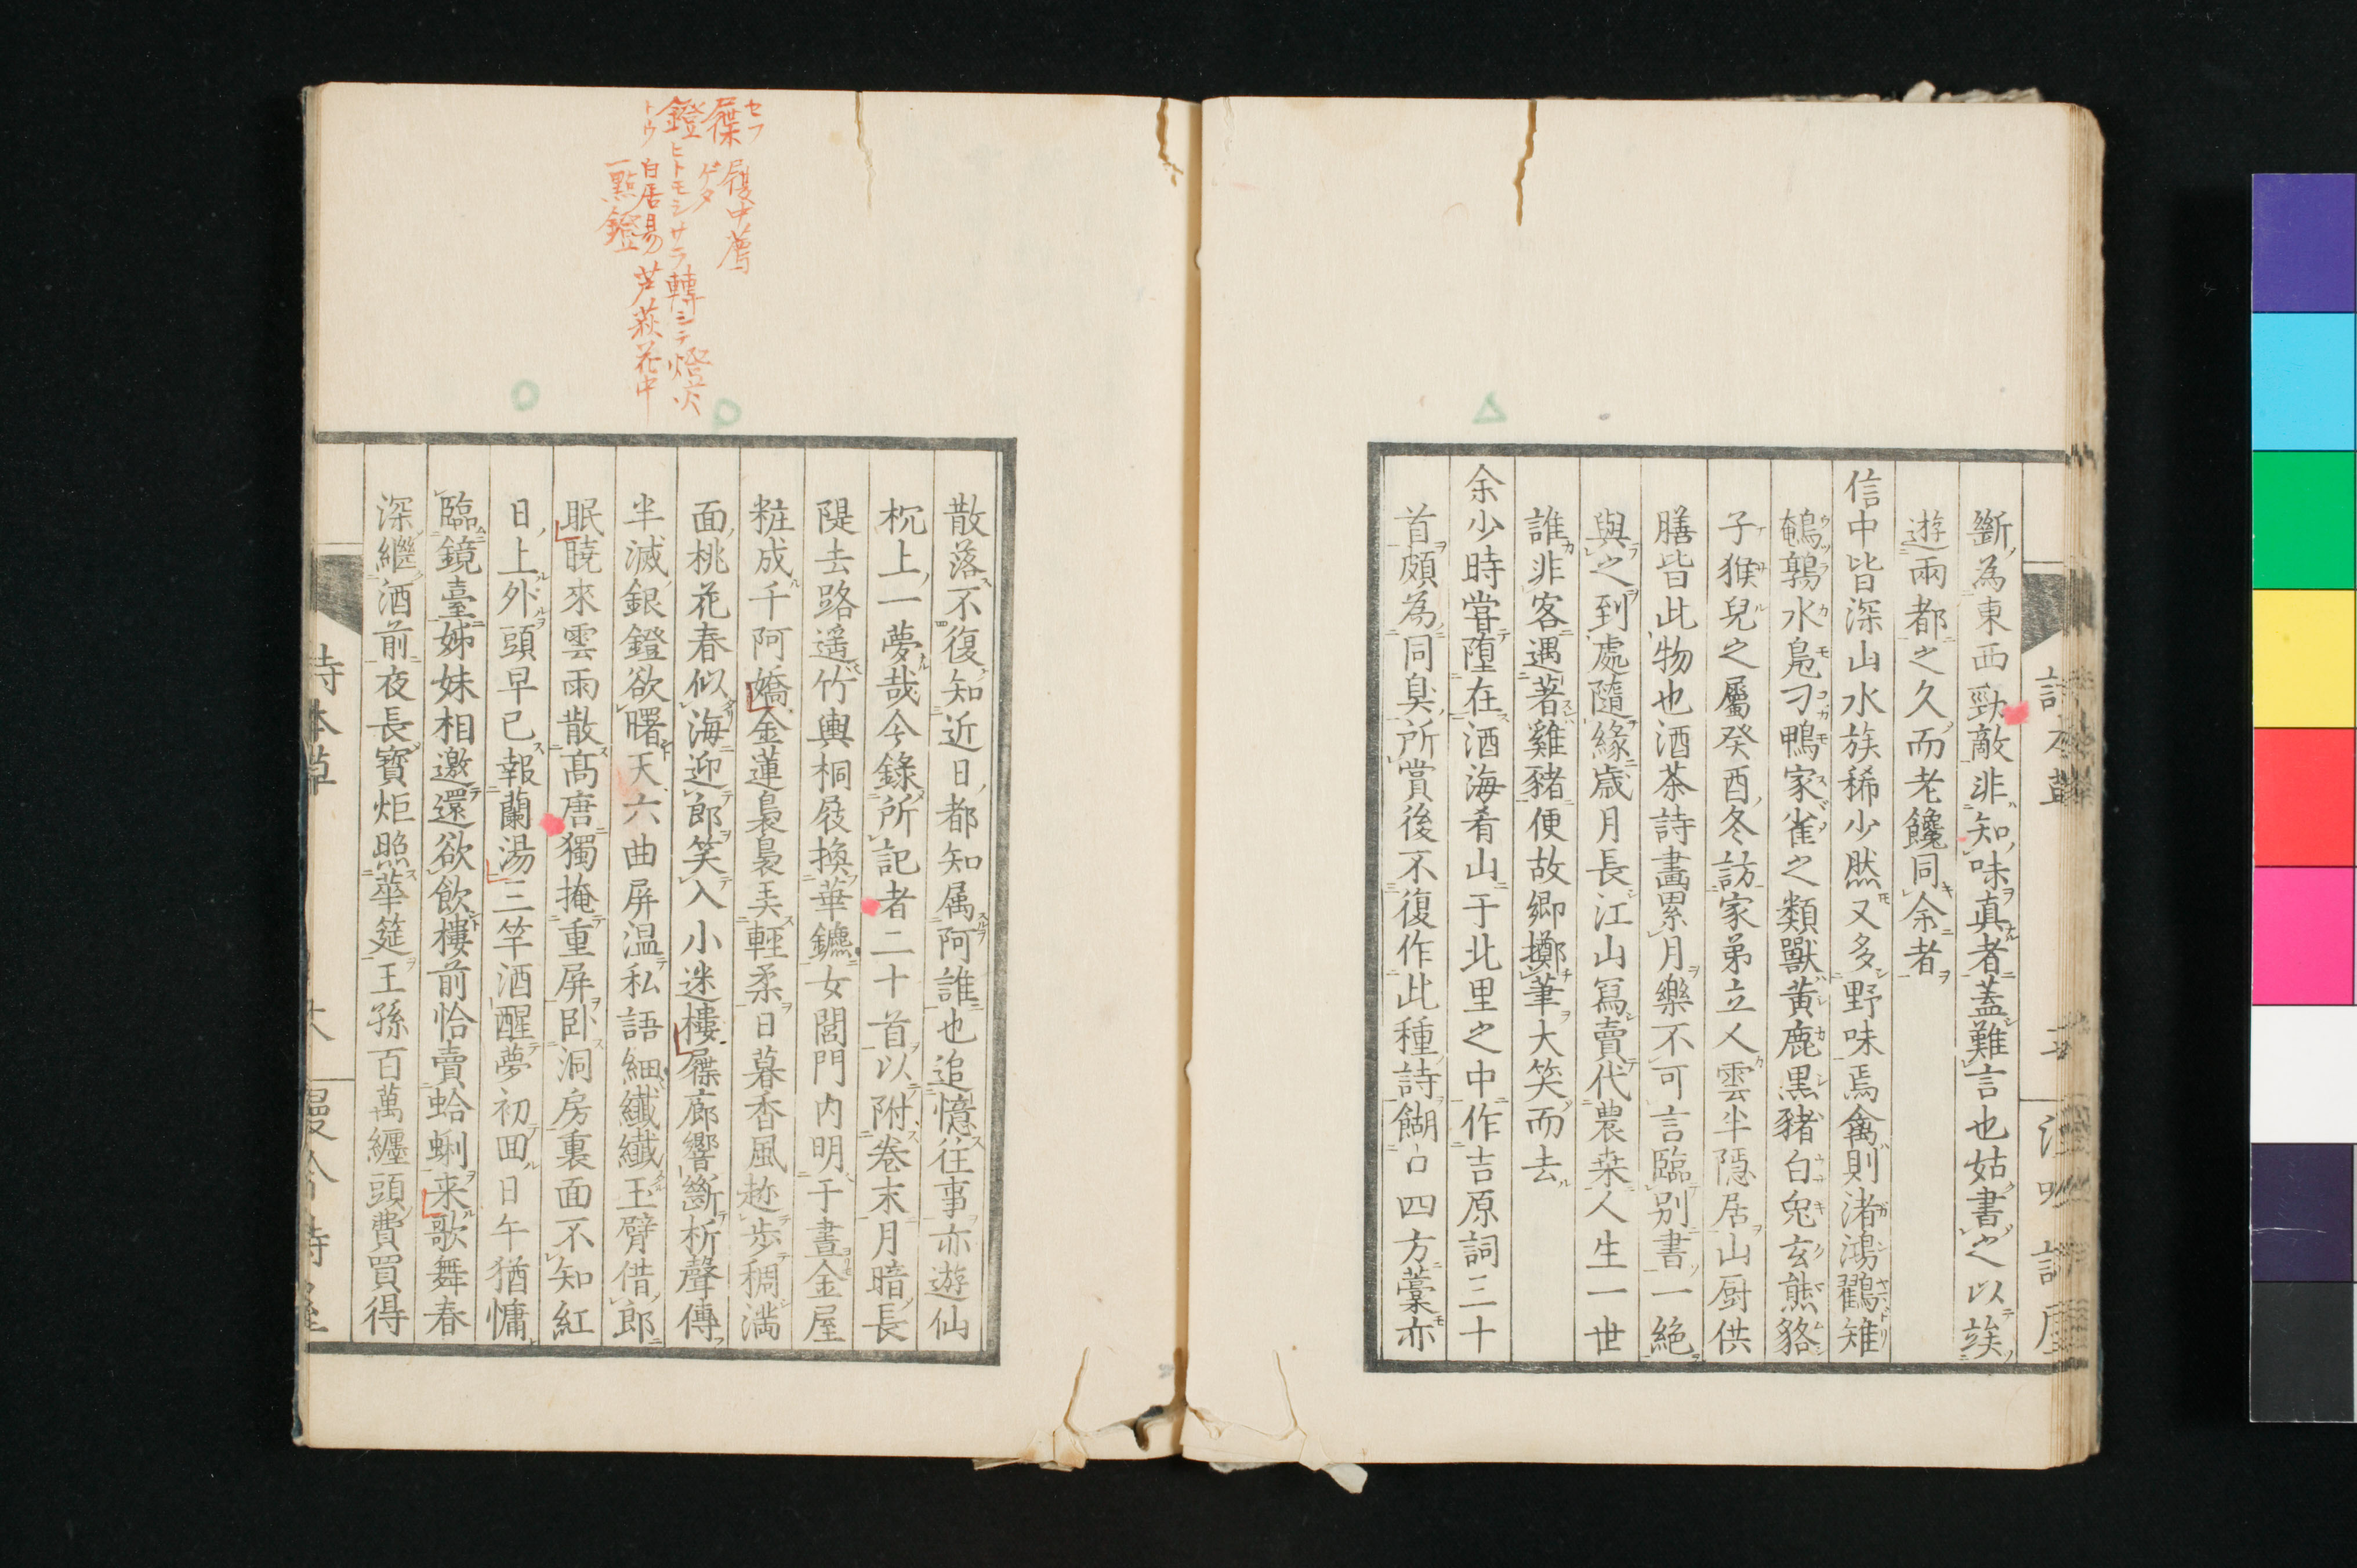 斷為東西勁敵非知味真者蓋難言也姑書之以竢
遊兩都之久而老饞同余者
信中皆深山水族稀少然又多野味焉禽則渚鴻鸐雉
鵪鶉水鳧刁鴨家雀之類獸黃鹿黒豬白兔玄熊貉
子猴兒之屬癸酉冬訪家弟立人雲半隱居山厨供
膳皆此物也酒茶詩畫累月樂不可言臨別書一絶
與之到處隨緣歳月長江山寫賣代農桒人生一世
誰非客遇著雞豬便故鄉擲筆大笑而去
余少時嘗墮在酒海肴山于北里之中作吉原詞三十
首頗為同臭所賞後不復作此種詩餬口四方藁亦
散落不復知近日都知属阿誰也追憶往事亦遊仙
枕上一夢哉今錄所記者二十首以附卷末月暗長
隄去路遥竹輿桐屐換華鑣女閭門内明于晝金屋
粧成千阿嬌金蓮裊裊美輕柔日暮香風趂步稠満
面桃花春似海迎郎笑入小迷樓屧廊響斷柝聲傳
半滅銀鐙欲曙天六曲屏温私語細纖纖玉臂借郎
眠曉來雲雨散髙唐獨掩重屏卧洞房裏面不知紅
日上外頭早已報蘭湯三竿酒醒夢初回日午猶慵
臨鏡臺姊妹相邀還欲飲樓前恰賣蛤蜊来歌舞春
深繼酒前夜長寳炬照華筵王孫百萬纏頭費買得
詩本草
屧 セフ 履中薦 ゲタ
鐙 トウ ヒトモシサラ 轉シテ燈火
白居易 芦荻花中
一點鐙